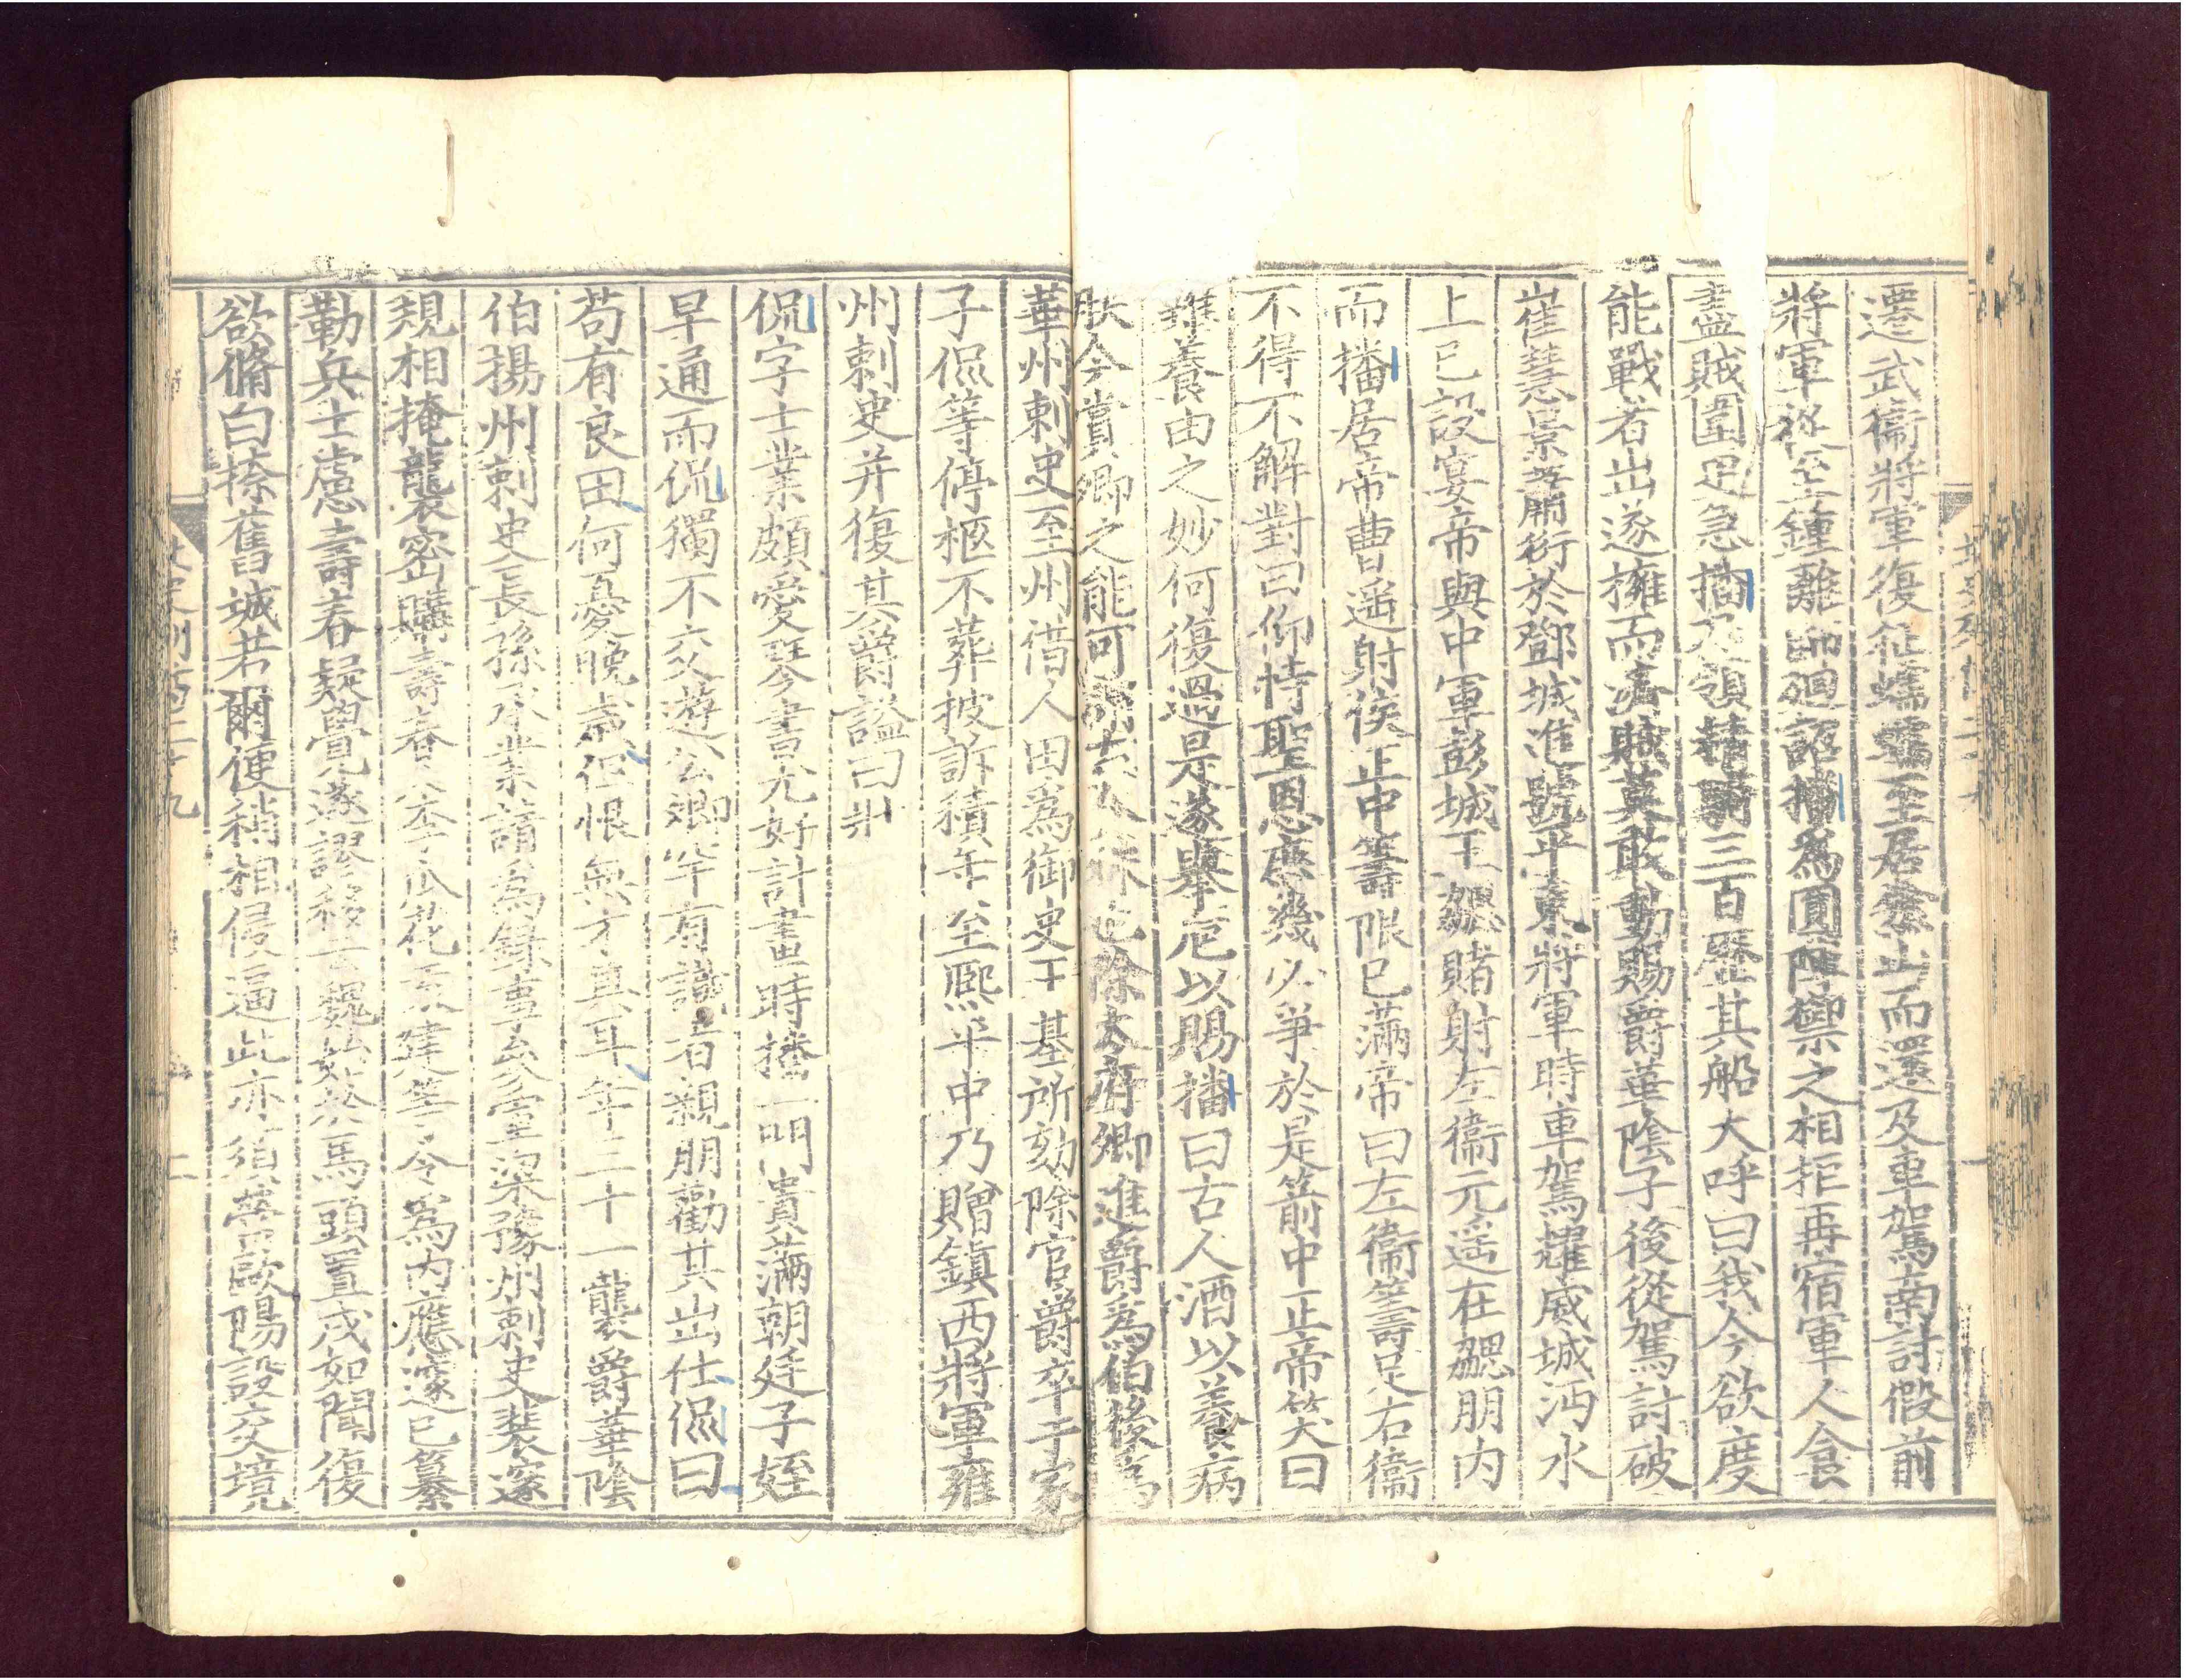 遷武衞將軍復征蠕蠕至居然山而還及車駕南討假前
將軍從至鍾離師廻詔播爲圓陣禦之相拒再宿軍人食
盡賊圍更急播乃領精騎三百歷其船大呼曰我今欲度
能戰者出遂擁而濟賊莫敢動賜爵華陰子後從駕討破
崔慧景蕭衍於鄧城進號平東將軍時車駕耀威城沔水
上巳設宴帝與中軍彭城王勰賭射左衞元遥在勰朋内
而播居帝曹遥射侯正中籌限已滿帝曰左衞籌足右衞
不得不解對曰仰恃聖恩庶幾必爭於是箭中正帝笑曰
雖養由之妙何復過是遂舉巵以賜播曰古人酒以養病
朕今賞卿之能可謂古今殊也除太府卿進爵爲伯後爲
華州刺史至州借人田爲御史王基所劾除官爵卒于家
子侃等停柩不葬披訴積年至熙平中乃贈鎮西將軍雍
州刺史并復其爵謚曰壯
侃字士業頗愛琴書尤好計畫時播一門貴滿朝廷子姪
早通而侃獨不交遊公卿罕有識者親朋勸其出仕侃曰
苟有良田何憂晚歲但恨無才具耳年三十一襲爵華陰
伯揚州刺史長孫承業請爲録事叅軍梁豫州刺史裴邃
規相掩襲密購壽春人李瓜花袁建等令爲内應邃已纂
勒兵士慮壽春疑覺遂謬移云魏始於馬頭置戍如聞復
欲脩白捺舊城若爾便稍相侵逼此亦須營歐陽設交境
北史列傳二十九
二